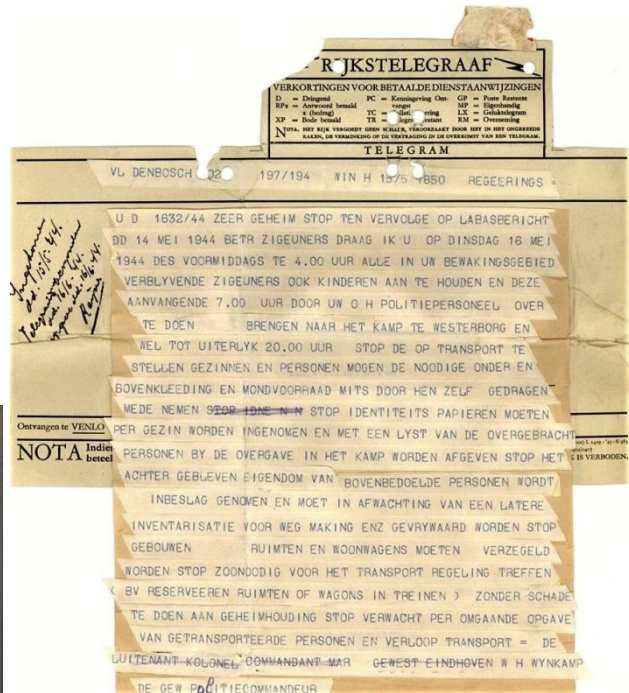 RIJKSTELEGRAAF
VERKORTINGEN VOOR BETAALDE DIENSTAANWIJZINGEN
D = Dringend
RPx = Antwoord betaald
x (bedrag)
XP = Bode betaald
PC = Kennisgeving Ont-
vangst
TC =
TR =
GP = Poste Restante
MP = Eigenhandig
LX = Gelukstelegram
RM = Overneming
NOTA. HET RIJK VERGOEDT GEEN SCHADE, VEROORZAAKT DOOR HET IN HET ONGEREEDE
RAKEN, DE VERMINKING OF DE VERTRAGING IN DE OVERKOMST VAN EEN TELEGRAM.
TELEGRAM
VL DENBOSCH 02 197/194 WIN H 1575 1850 REGEERINGS =
U D 1632/44 ZEER GEHEIM STOP TEN VERVOLGE OP LABASBERICHT
DD 14 MEI 1944 BETR ZIGEUNERS DRAAG IK U OP DINSDAG 16 MEI
1944 DES VOORMIDDAGS TE 4.00 UUR ALLE IN UW BEWAKINGSGEBIED
VERBLYVENDE ZIGEUNERS OOK KINDEREN AAN TE HOUDEN EN DEZE
AANVANGENDE 7.00 UUR DOOR UW O H POLITIEPERSONEEL OVER
TE DOEN BRENGEN NAAR HET KAMP TE WESTERBORG EN
WEL TOT UITERLYK 20.00 UUR STOP DE OP TRANSPORT TE
STELLEN GEZINNEN EN PERSONEN MOGEN DE NOODIGE ONDER EN
BOVENKLEEDING EN MONDVOORRAAD MITS DOOR HEN ZELF GEDRAGEN
MEDE NEMEN STOP IDNE N N STOP IDENTITEITS PAPIEREN MOETEN
PER GEZIN WORDEN INGENOMEN EN MET EEN LYST VAN DE OVERGEBRACHT
PERSONEN BY DE OVERGAVE IN HET KAMP WORDEN AFGEVEN STOP HET
ACHTER GEBLEVEN EIGENDOM VAN BOVENBEDOELDE PERSONEN WORDT
INBESLAG GENOMEN EN MOET IN AFWACHTING VAN EEN LATERE
INVENTARISATIE VOOR WEG MAKING ENZ GEVRYWAARD WORDEN STOP
GEBOUWEN RUIMTEN EN WOONWAGENS MOETEN VERZEGELD
WORDEN STOP ZOONOODIG VOOR HET TRANSPORT REGELING TREFFEN
( BV RESERVEEREN RUIMTEN OF WAGONS IN TREINEN ) ZONDER SCHADE
TE DOEN AAN GEHEIMHOUDING STOP VERWACHT PER OMGAANDE OPGAVE
VAN GETRANSPORTEERDE PERSONEN EN VERLOOP TRANSPORT = DE
LUITENANT KOLONEL COMMANDANT MAR GEWEST EINDHOVEN W H WYNKAMP
DE GEW POLITIECOMMANDEUR
Ontvangen te VENLO
NOTA Indien
beteel
IS VERBODEN.